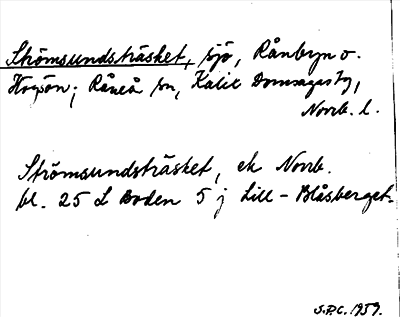 Strömsundsträsket, sjö, Rånbyn o.
Högsön; Råneå sn, Kalix Domsagas tg,
Norrb. l.
Strömsundsträsket, ek Norrb.
bl. 25 L Boden 5 j Lill-Blåsberget.
S.P.C. 1959.